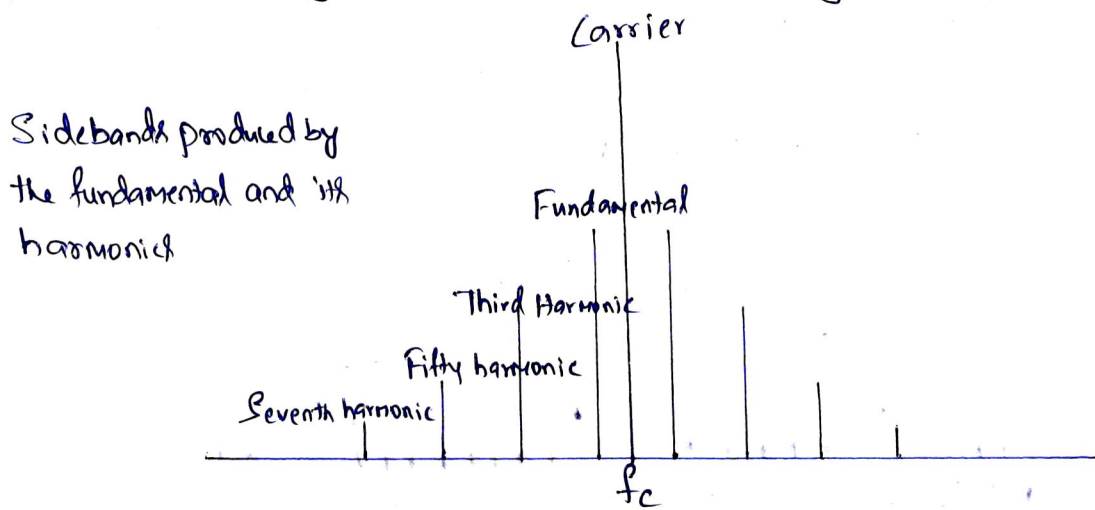 Carrier
Sidebands produced by
the fundamental and its
harmonics
Fundamental
Third Harmonic
Fifty harmonic
Seventh harmonic
fc